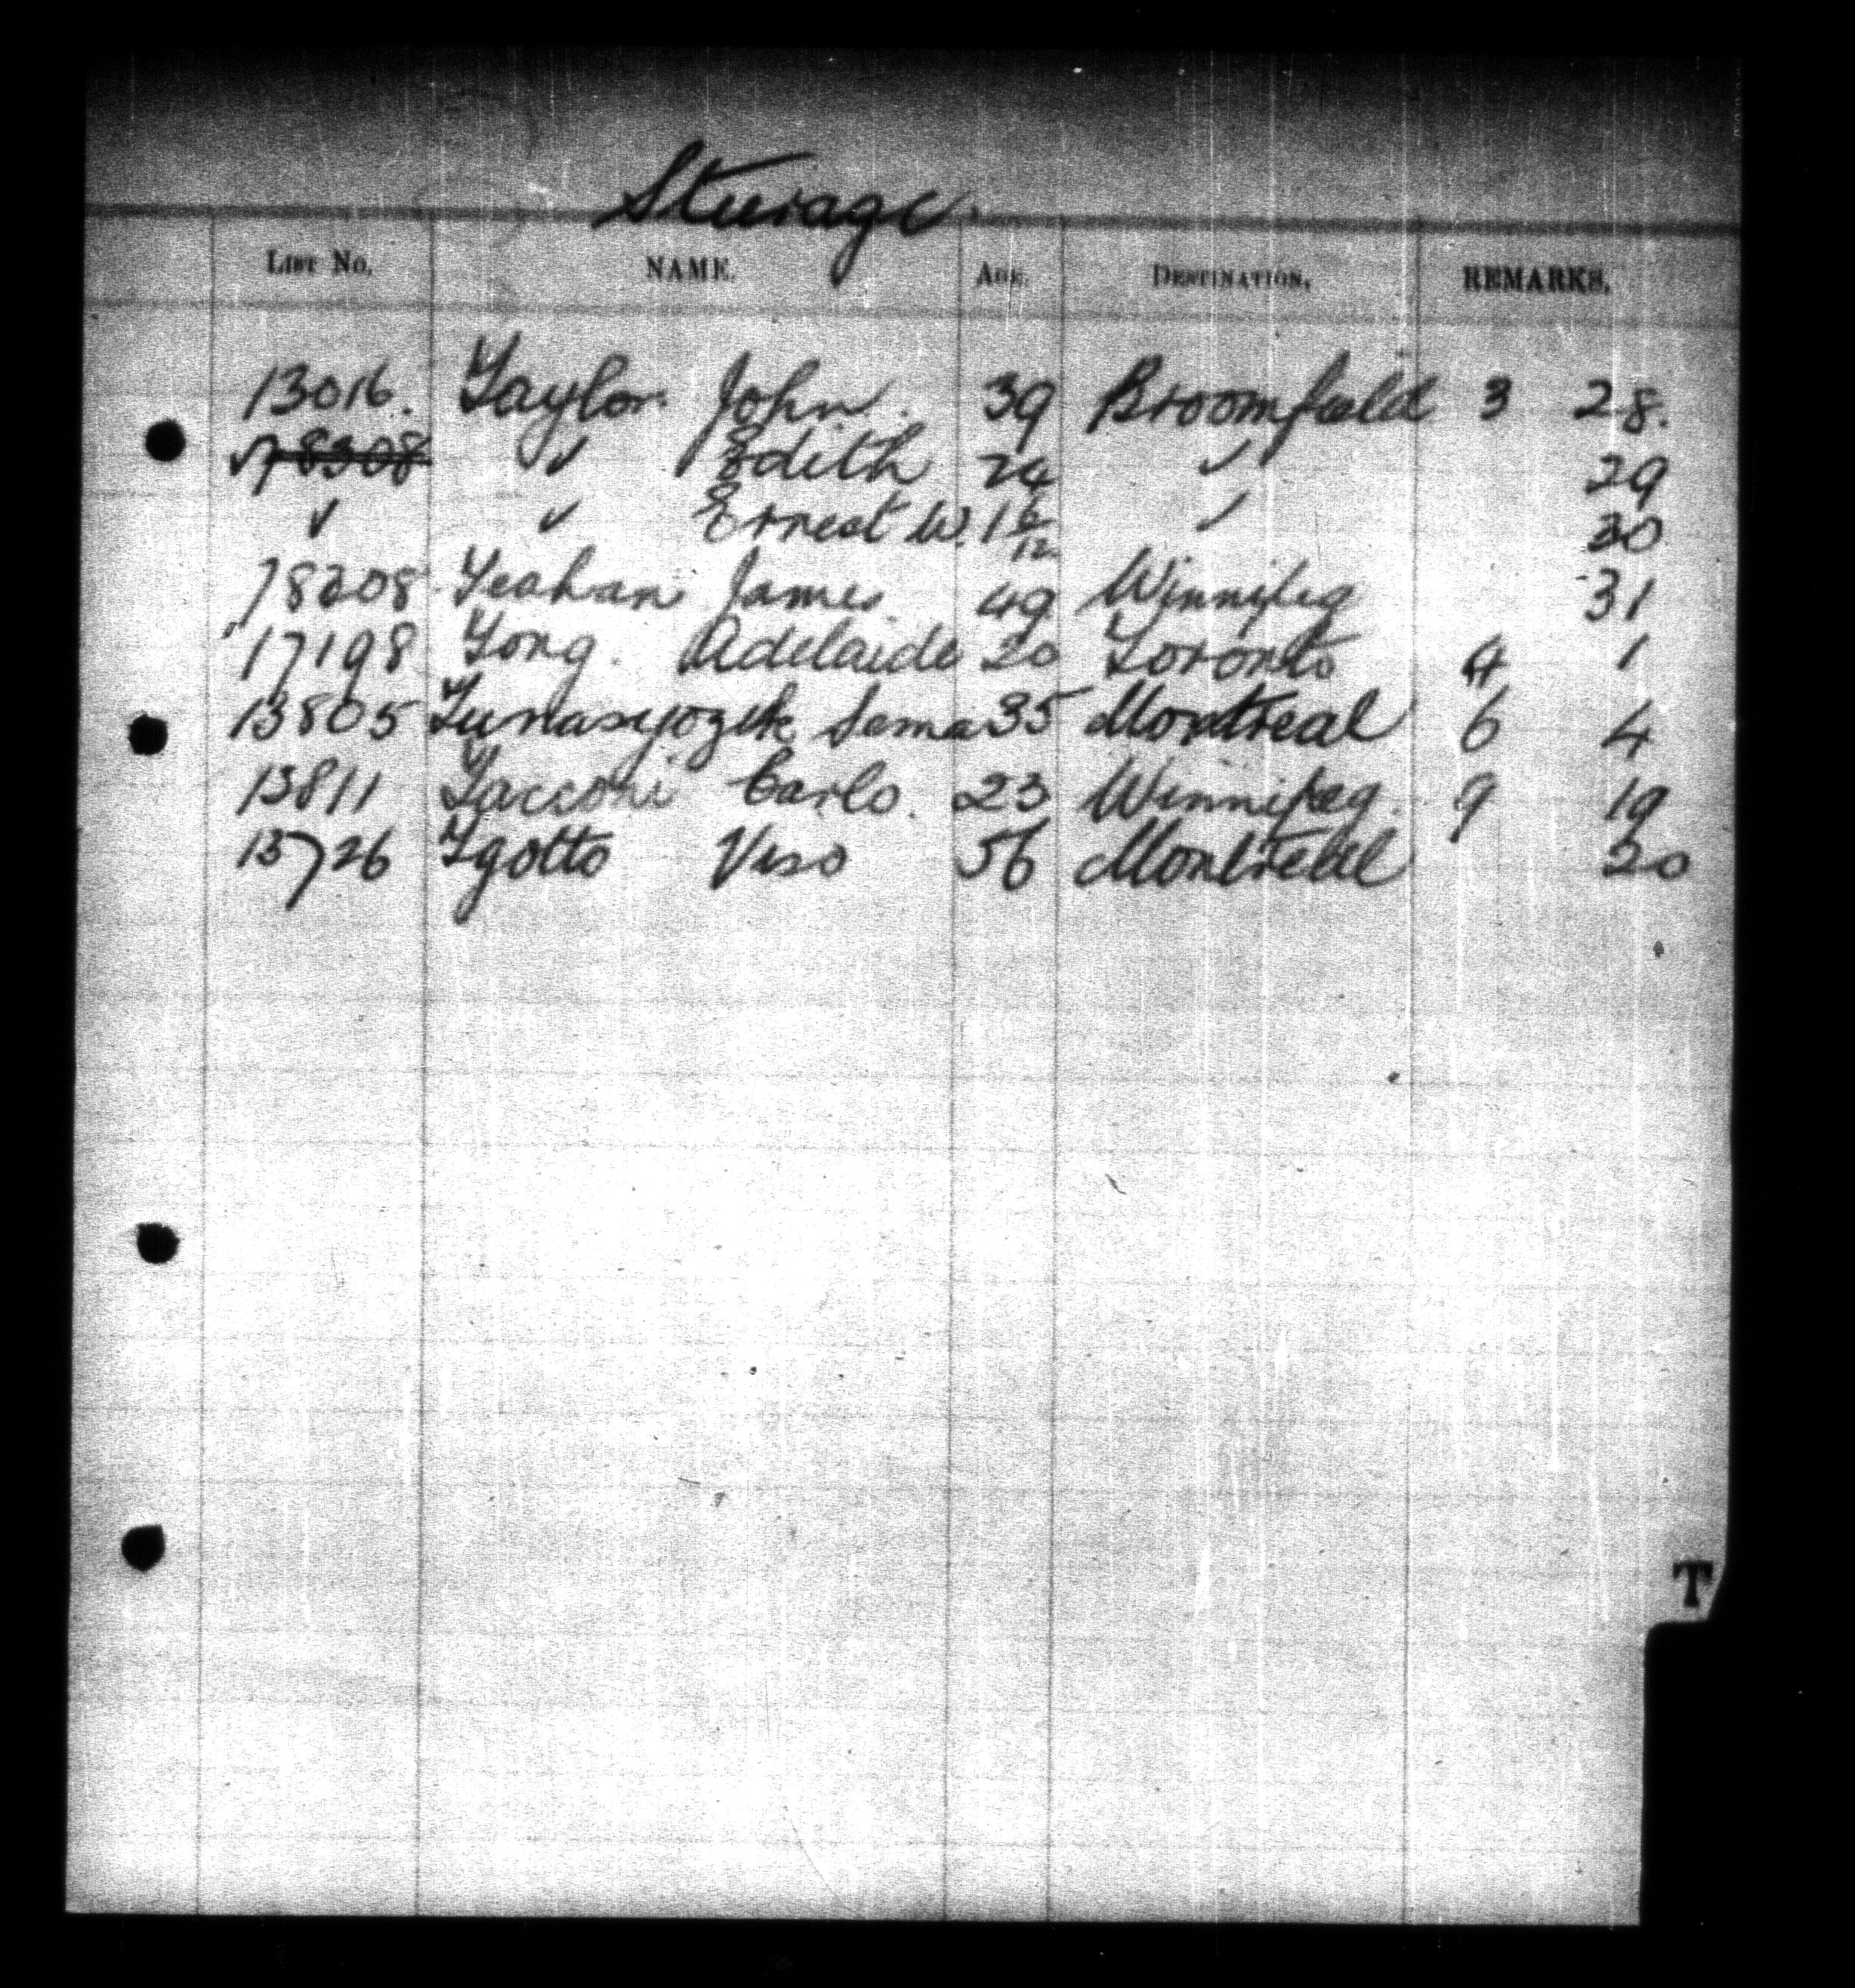 Steerage.
LIST No. NAME. AGE. DESTINATION, REMARKS.
13016. Taylor John. 39 Broomfield 3 28.
✓ 78308 ✓ Edith 24 ✓ 29
✓ ✓ Ernest W. 1 6/12 ✓ 30
78208 Teahan James 49 Winnipeg 31
17198 Tong. Adelaide 20 Toronto 4 1
13805 Sema 35 Montreal 6 4
13811 Tacconi Carlo. 23 Winnipeg. 9 19
13726 Tgotto Viso 56 Montreal 20
T